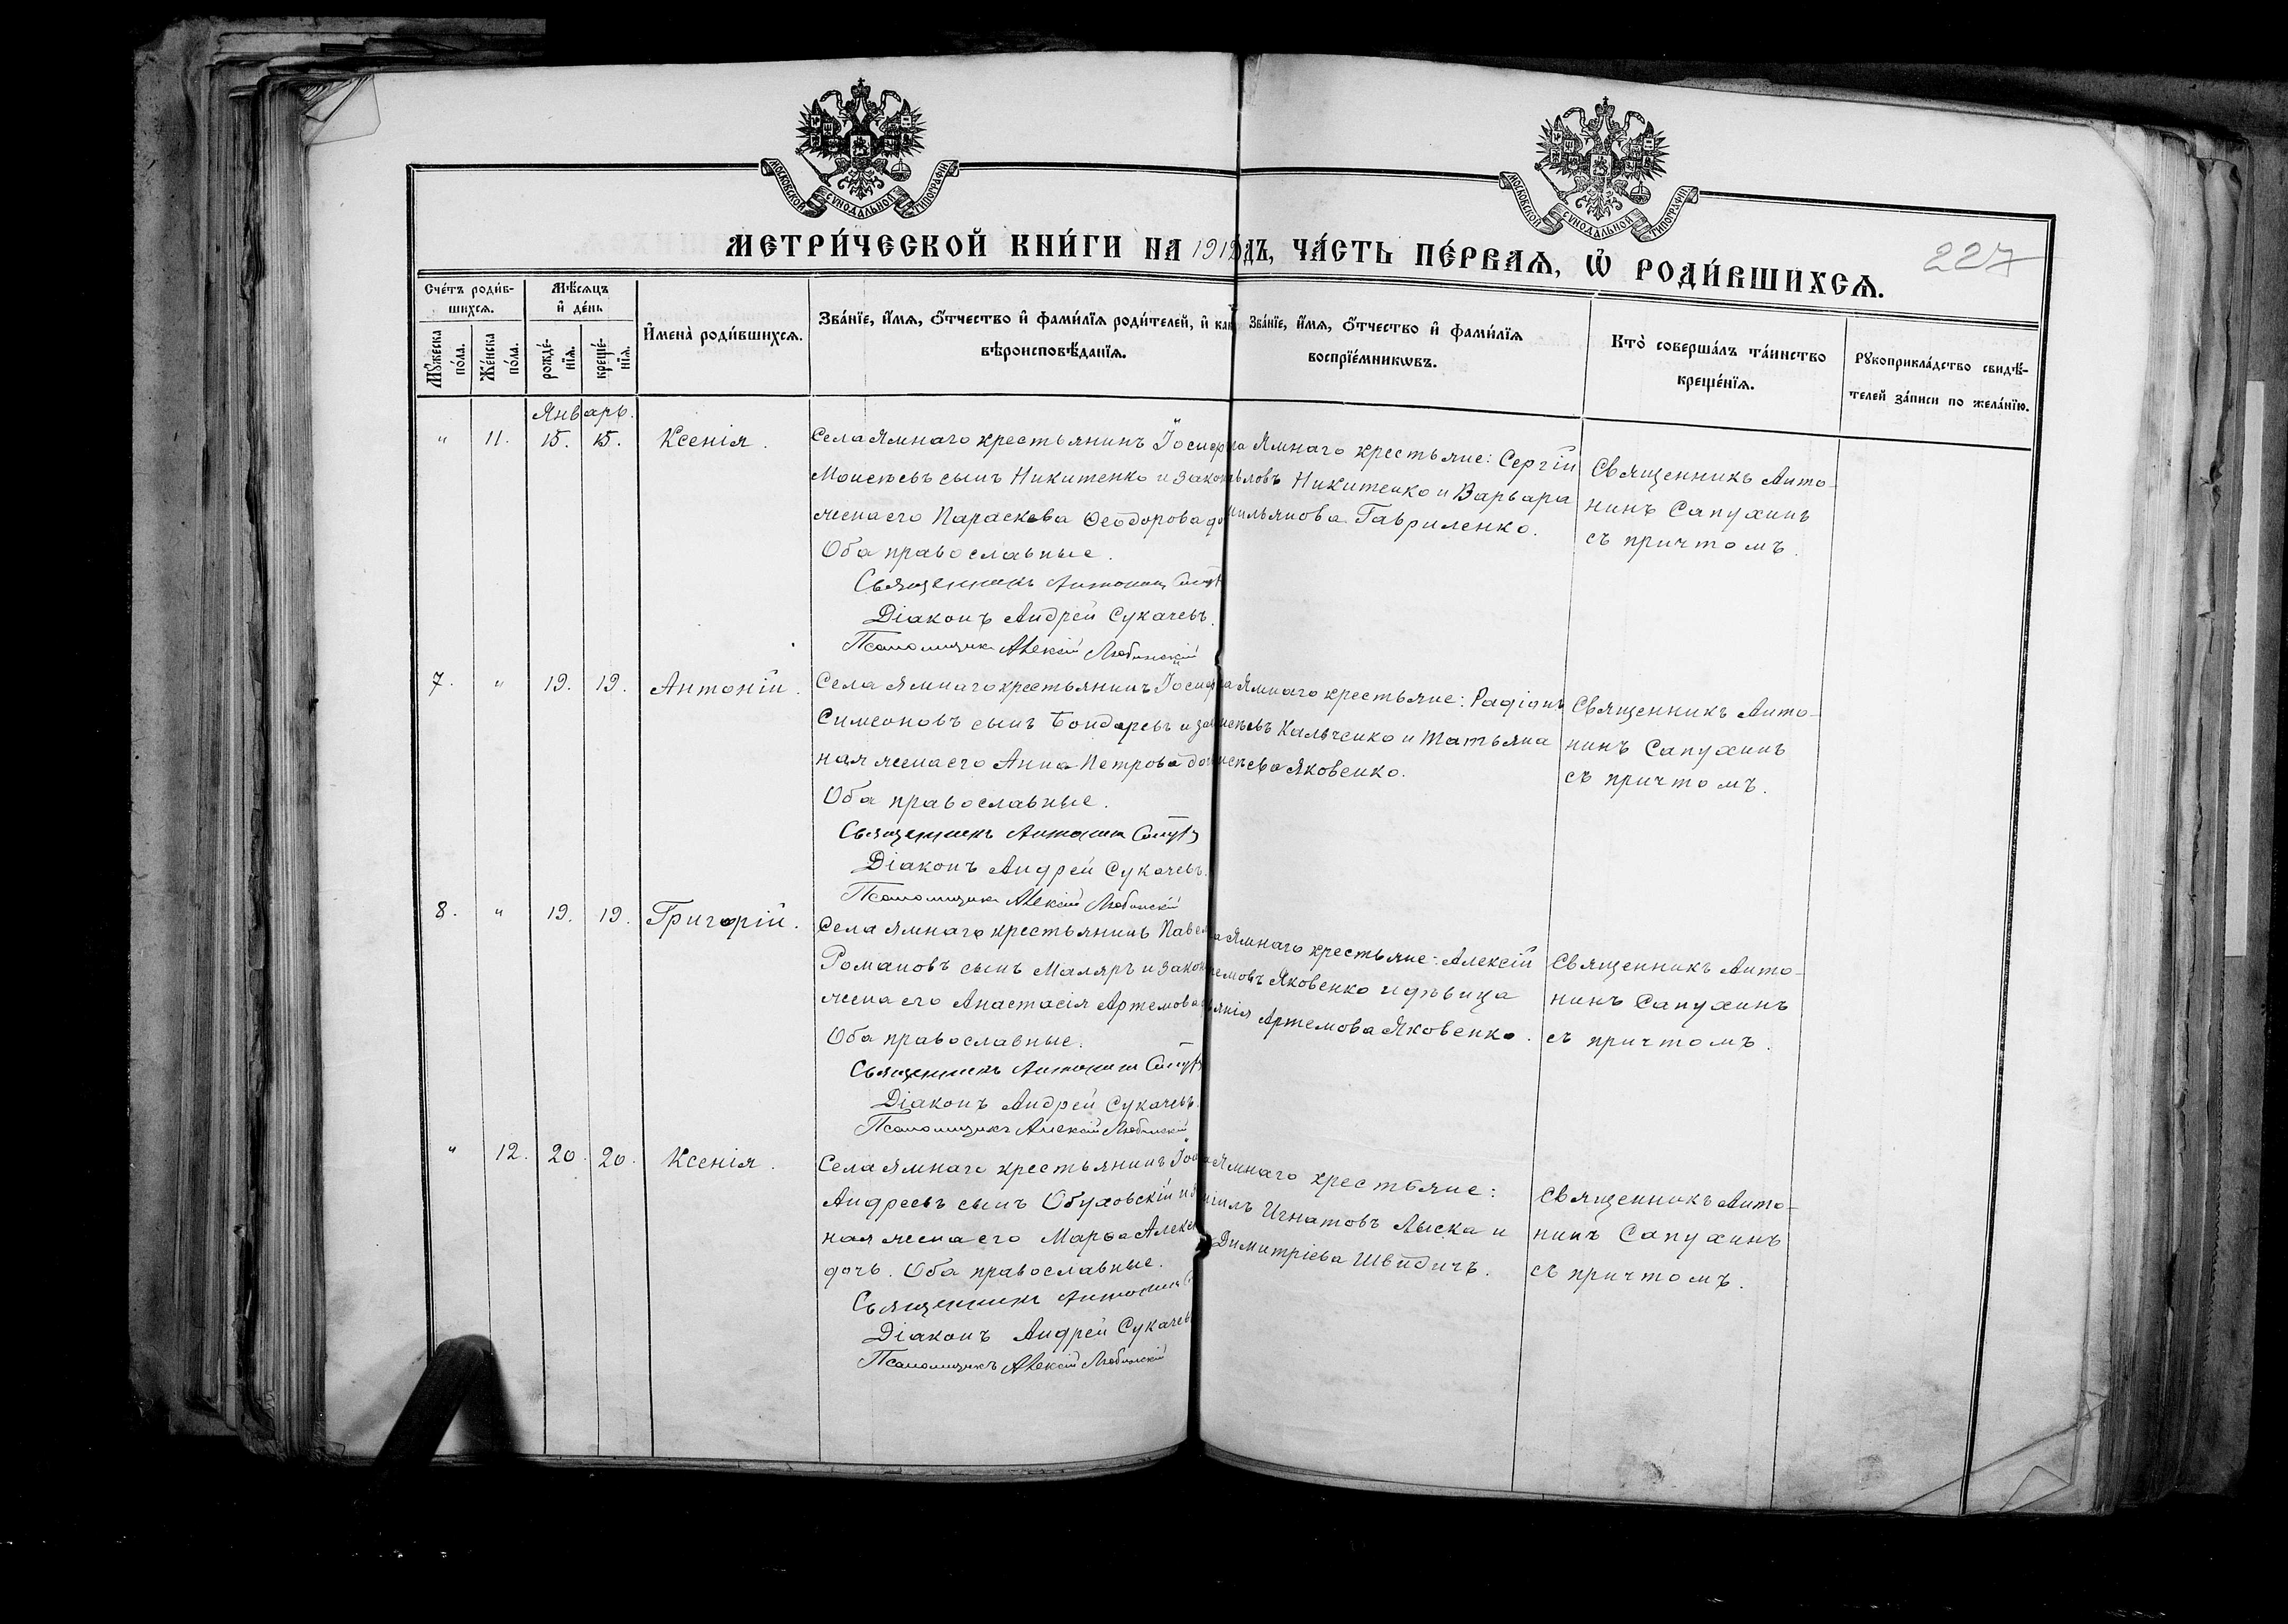 МОСКОВСКОЙ СѴНОДАЛЬНОЙ ТИПОГРАФІИ
МОСКОВСКОЙ СѴНОДАЛЬНОЙ ТИПОГРАФІИ
МЕТРИ́ЧЕСКОЙ КНИ́ГИ НА 1912 ДЪ, ЧА́СТЬ ПЕ́РВАЯ, Ѡ РОДИ́ВШИХСЯ.
227
Сче́тъ роди́в-
шихся.
Мѣ́сяцъ
и де́нь
Мꙋжеска по́ла.
Же́нска по́ла.
рожде́-
нїя.
креще́-
нїя.
Имена̀ роди́вшихся.
Зва́нїе, и́мя, о́тчество и фами́лїя роди́телей, и как
вѣроисповѣ́данїя.
Зва́нїе, и́мя, о́тчество и фами́лїя
воспрїе́мникѡвъ.
Кто̀ соверша́лъ та́инство
креще́нїя.
Рꙋкоприкла́дство свидѣ́-
телей за́писи по жела́нїю.
Январь.
" 11. 15. 15. Ксенія.
Села Ямнаго крестьянинъ Іосиф
Моисѣевъ сынъ Никитенко и закон
жена его Параскева Ѳеодорова до
Оба православные.
Священникъ Антонин
Діаконъ Андрей Сукачевъ.
Псаломщикъ Алексій Любинскій
Ямнаго крестьяне: Сергій
Никитенко и Варвара
Гавриленко.
Священникъ Анто-
нинъ Сапухинъ
съ причтомъ.
7. " 19. 19. Антоній.
Села Ямнаго крестьянинъ Іосиф
Симеоновъ сынъ Бондаревъ и за
ная жена его Анна Петрова до
Оба православные.
Священникъ Антонин
Діаконъ Андрей Сукачевъ.
Псаломщикъ Алексій Любинскій
Ямнаго крестьяне: Радіонъ
Кальченко и Татьяна
Яковенко.
Священникъ Анто-
нинъ Сапухинъ
съ причтомъ.
8. " 19. 19. Григорій.
Села Ямнаго крестьянинъ Павел
Романовъ сынъ Маляръ и закон
жена его Анастасія Артемова
Оба православные.
Священникъ Антонин
Діаконъ Андрей Сукачевъ.
Псаломщикъ Алексій Любинскій
Ямнаго крестьяне: Алексій
емовъ Яковенко и дѣвица
Артемова Яковенко.
Священникъ Анто-
нинъ Сапухинъ
съ причтомъ.
" 12. 20. 20. Ксенія.
Села Ямнаго крестьянинъ Іо
Андреевъ сынъ Обуховскій и з
ная жена его Марѳа Алекс
дочь. Оба православные.
Священникъ Антонин
Діаконъ Андрей Сукачевъ
Псаломщикъ Алексій Любинскій
Ямнаго крестьяне:
Игнатовъ Лыска и
Димитріева Швыдичъ.
Священникъ Анто-
нинъ Сапухинъ
съ причтомъ.